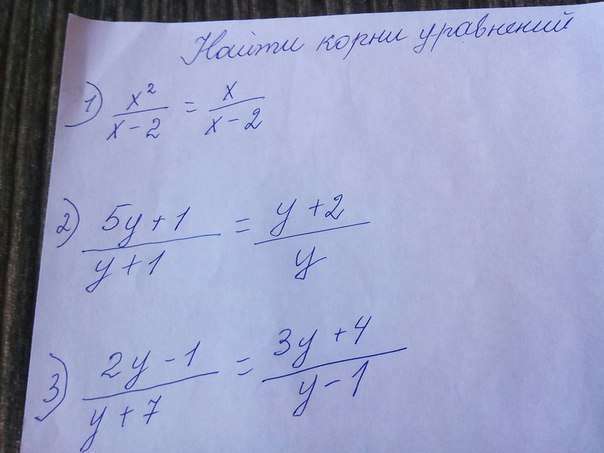 Найти корни уравнений
1) x²/(x-2) = x/(x-2)
2) (5y+1)/(y+1) = (y+2)/y
3) (2y-1)/(y+7) = (3y+4)/(y-1)